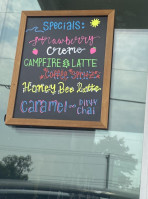 Specials:
Strawberry
Creme
CAMPFIRE LATTE
Coffee Spritzer
Honey Bee Latte
Caramel
Dirty
Chai